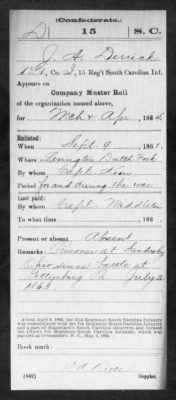 (Confederate.)
D 15 S. C.
J. A. Derrick
Co. I, 15 Reg't South Carolina Inf.
Appears on
Company Muster Roll
of the organization named above,
for Mch & Apr, 1864.
Enlisted:
When Sept 9, 1861.
Where Lexington Dutch Fork
By whom Capt.
Period for and during the war
Last paid:
By whom Capt. Middleton
To what time , 186 .
Present or absent, Absent
Remarks: Prisoner at Sandusky
Ohio since battle at
Gettysburg Pa July 2
1863
Book mark:
(642) Copyist.